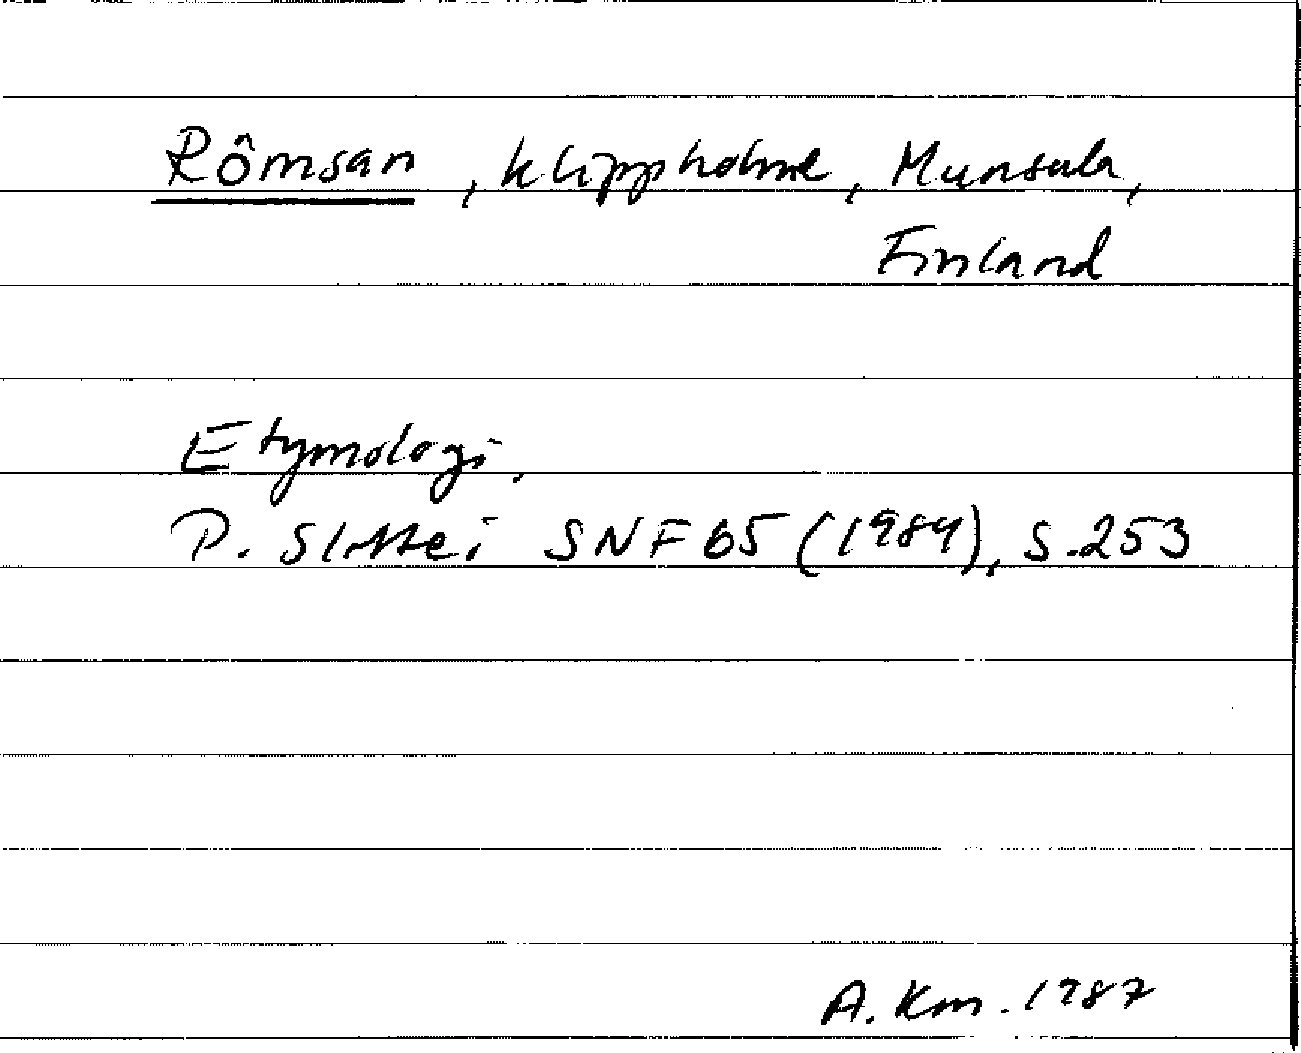 Rômsan, klippholme, Munsala,
Finland
Etymologi,
P. Slottei SNF 65 (1984), s. 253
A. Km. 1987